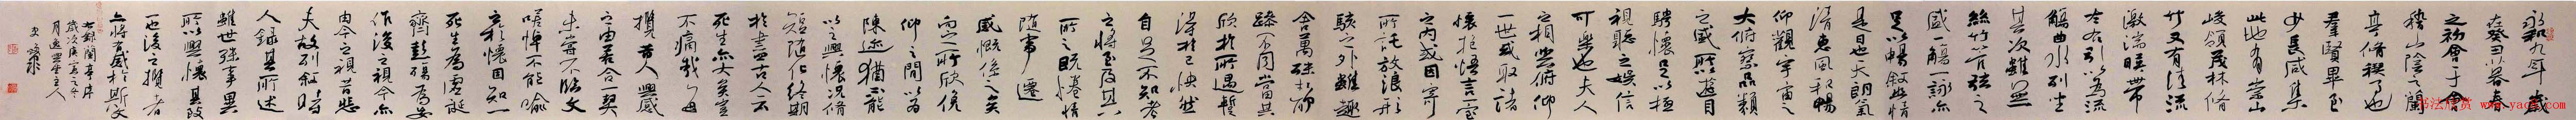 永和九年歲
在癸丑暮春
之初會于會
稽山陰之蘭
亭脩禊事也
羣賢畢至
少長咸集
此地有崇山
峻領茂林脩
竹又有清流
激湍暎帶
左右引以為流
觴曲水列坐
其次雖無
絲竹管弦之
盛一觴一詠亦
足以暢敘幽情
是日也天朗氣
清惠風和暢
仰觀宇宙之
大俯察品類
之盛所以遊目
騁懷足以極
視聽之娛信
可樂也夫人
之相與俯仰
一世或取諸
懷抱悟言一室
之內或因寄
所託放浪形
骸之外雖趣
舍萬殊靜
躁不同當其
欣於所遇暫
得於己快然
自足不知老
之將至及其
所之既惓情
隨事遷
感慨係之矣
向之所欣俛
仰之間以為
陳迹猶不能
以之興懷況脩
短隨化終期
於盡古人云
死生亦大矣豈
不痛哉每
攬昔人興感
之由若合一契
未嘗不臨文
嗟悼不能喻
之於懷固知一
死生為虛誕
齊彭殤為妄
作後之視今亦
由今之視昔悲
夫故列敘時
人錄其所述
雖世殊事異
所以興懷其致
一也後之攬者
亦將有感於斯文
右錄蘭亭序
歲次庚寅之冬
书法欣赏 www.yac8.com